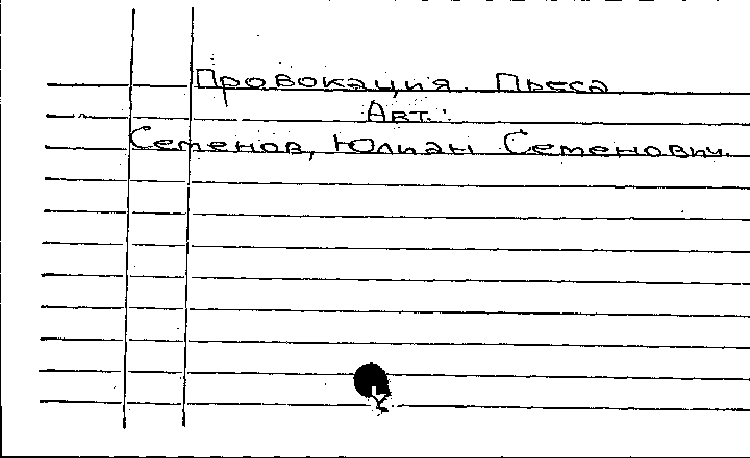 Провокация. Пьеса
Авт.:
Семенов, Юлиан Семенович.